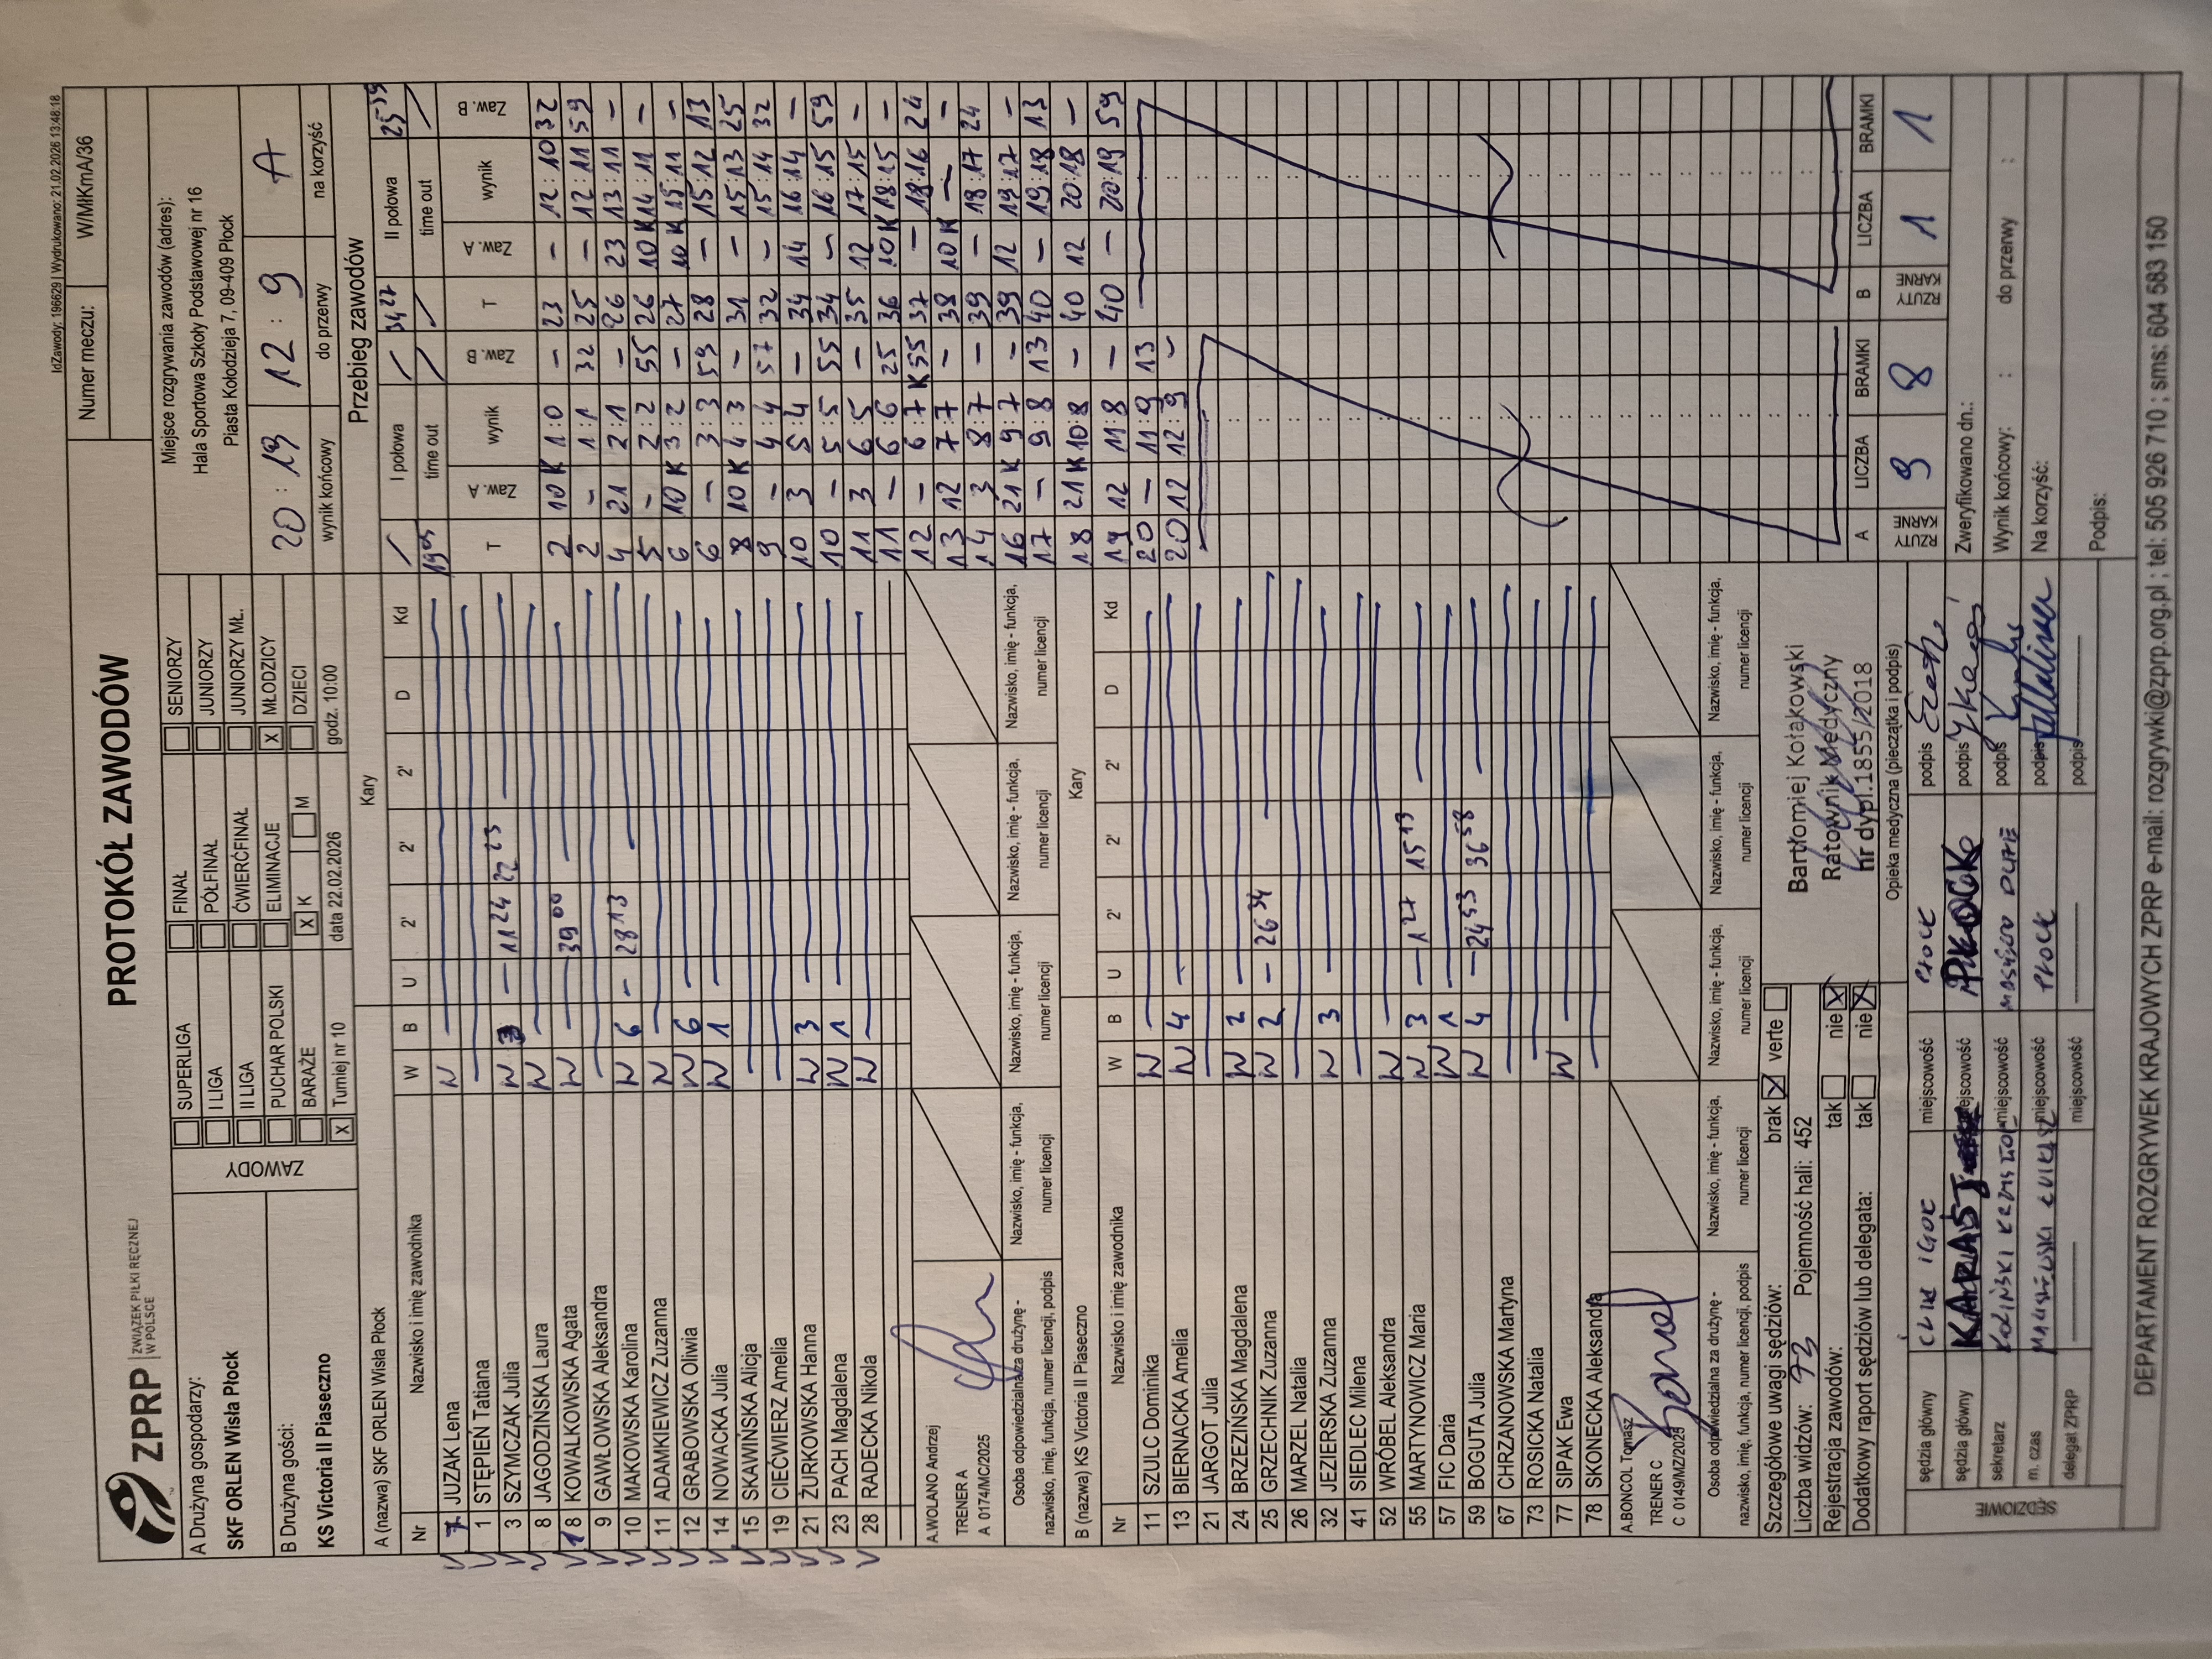 IdZawody: 196629 | Wydrukowano: 21.02.2026 13:48:18
ZPRP ZWIĄZEK PIŁKI RĘCZNEJ W POLSCE
PROTOKÓŁ ZAWODÓW
Numer meczu: W/MłKmA/36
A Drużyna gospodarzy:
SKF ORLEN Wisła Płock
B Drużyna gości:
KS Victoria II Piaseczno
ZAWODY
SUPERLIGA
I LIGA
II LIGA
PUCHAR POLSKI
BARAŻE
X Turniej nr 10
FINAŁ
PÓŁFINAŁ
ĆWIERĆFINAŁ
ELIMINACJE
X K M
data 22.02.2026
SENIORZY
JUNIORZY
JUNIORZY MŁ.
X MŁODZICY
DZIECI
godz. 10:00
Miejsce rozgrywania zawodów (adres):
Hala Sportowa Szkoły Podstawowej nr 16
Piasta Kołodzieja 7, 09-409 Płock
20 : 19 12 : 9 A
wynik końcowy do przerwy na korzyść
A (nazwa) SKF ORLEN Wisła Płock Kary
Nr Nazwisko i imię zawodnika W B U 2' 2' 2' D Kd
JUZAK Lena W
1 STĘPIEŃ Tatiana
3 SZYMCZAK Julia W 3 — 11 24 22 23
8 JAGODZIŃSKA Laura W
18 KOWALKOWSKA Agata W — 39 00
9 GAWŁOWSKA Aleksandra
10 MAKOWSKA Karolina W 6 — 28 13
11 ADAMKIEWICZ Zuzanna W
12 GRABOWSKA Oliwia W 6
14 NOWACKA Julia W 1
15 SKAWIŃSKA Alicja
19 CIEĆWIERZ Amelia
21 ŻURKOWSKA Hanna W 3
23 PACH Magdalena W 1
28 RADECKA Nikola W
A.WOLANO Andrzej
TRENER A
A 0174/MC/2025
Osoba odpowiedzialna za drużynę -
nazwisko, imię, funkcja, numer licencji, podpis
Nazwisko, imię - funkcja, numer licencji
Nazwisko, imię - funkcja, numer licencji
Nazwisko, imię - funkcja, numer licencji
Nazwisko, imię - funkcja, numer licencji
B (nazwa) KS Victoria II Piaseczno Kary
Nr Nazwisko i imię zawodnika W B U 2' 2' 2' D Kd
11 SZULC Dominika W
13 BIERNACKA Amelia W 4
21 JARGOT Julia
24 BRZEZIŃSKA Magdalena W 2
25 GRZECHNIK Zuzanna W 2 — 26 34
26 MARZEL Natalia
32 JEZIERSKA Zuzanna W 3
41 SIEDLEC Milena
52 WRÓBEL Aleksandra W
55 MARTYNOWICZ Maria W 3 — 1 27 15 13
57 FIC Daria W 1
59 BOGUTA Julia W 4 — 24 53 36 58
67 CHRZANOWSKA Martyna
73 ROSICKA Natalia
77 SIPAK Ewa W
78 SKONECKA Aleksandra
A.BONCOL Tomasz
TRENER C
C 0149/MZ/2025
Osoba odpowiedzialna za drużynę -
nazwisko, imię, funkcja, numer licencji, podpis
Nazwisko, imię - funkcja, numer licencji
Nazwisko, imię - funkcja, numer licencji
Nazwisko, imię - funkcja, numer licencji
Nazwisko, imię - funkcja, numer licencji
Przebieg zawodów
I połowa
time out
19 09
T Zaw. A wynik Zaw. B
2 10 K 1:0 –
2 – 1:1 32
4 21 2:1 –
5 – 2:2 55
6 10 K 3:2 –
6 – 3:3 59
8 10 K 4:3 –
9 – 4:4 57
10 3 5:4 –
10 – 5:5 55
11 3 6:5 –
11 – 6:6 25
12 – 6:7 K 55
13 12 7:7 –
14 3 8:7 –
16 21 K 9:7 –
17 – 9:8 13
18 21 K 10:8 –
19 12 11:8 –
20 – 11:9 13
20 12 12:9 –
II połowa
time out
34 27 25 39
T Zaw. A wynik Zaw. B
23 – 12:10 32
25 – 12:11 59
26 23 13:11 –
26 10 K 14:11 –
27 10 K 15:11 –
28 – 15:12 13
31 – 15:13 25
32 – 15:14 32
34 14 16:14 –
34 – 16:15 59
35 12 17:15 –
36 10 K 18:15 –
37 – 18:16 24
38 10 K — –
39 – 18:17 24
39 12 19:17 –
40 – 19:18 13
40 12 20:18 –
40 – 20:19 59
A LICZBA BRAMKI B LICZBA BRAMKI
RZUTY KARNE 9 8 RZUTY KARNE 1 1
Szczegółowe uwagi sędziów: brak X verte
Liczba widzów: 73 Pojemność hali: 452
Rejestracja zawodów: tak nie X
Dodatkowy raport sędziów lub delegata: tak nie X
Bartłomiej Kołakowski
Ratownik Medyczny
nr dypl.1855/2018
Opieka medyczna (pieczątka i podpis)
SĘDZIOWIE
sędzia główny IGOR miejscowość PŁOCK podpis
sędzia główny miejscowość podpis
sekretarz KOLIŃSKI KRZYSZTOF miejscowość podpis
m. czas ŁUKASZ miejscowość PŁOCK podpis
delegat ZPRP miejscowość podpis
Zweryfikowano dn.:
Wynik końcowy: : do przerwy :
Na korzyść:
Podpis:
DEPARTAMENT ROZGRYWEK KRAJOWYCH ZPRP e-mail: rozgrywki@zprp.org.pl ; tel: 505 926 710 ; sms: 604 583 150